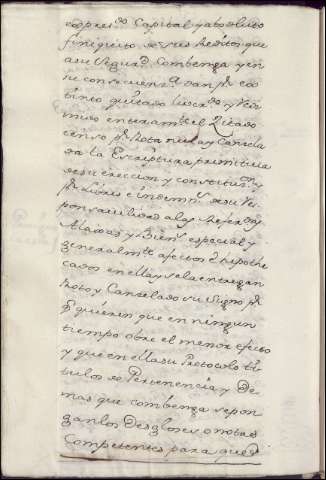 expres.do Capital y absoluto
finiquito de sus reditos que
a su segur.d Combenga y en
su consecuenc.a dan p.r ex
tinto quitado livera.do y Redi
mido enteram.te el Zitado
censo p.r Rota nula y Cancela
da la Escriptura primitiva
de su ereccion y constituz.on y
p.r Livres e indemn.s de su Res
ponsavilidad a las Referidas
Alajas y Bien.s especial y
generalm.te afectos e hipothe
cados en ella y se la entregan
Rota y Cancelada su signo p.r
q.e quieren que en ningun
tiempo obre el menor efecto
y que en ella su Protocolo ti
tulos de Pertenencia y De
mas que combenga se pon
gan los Desgloses o notas
Competentes para que